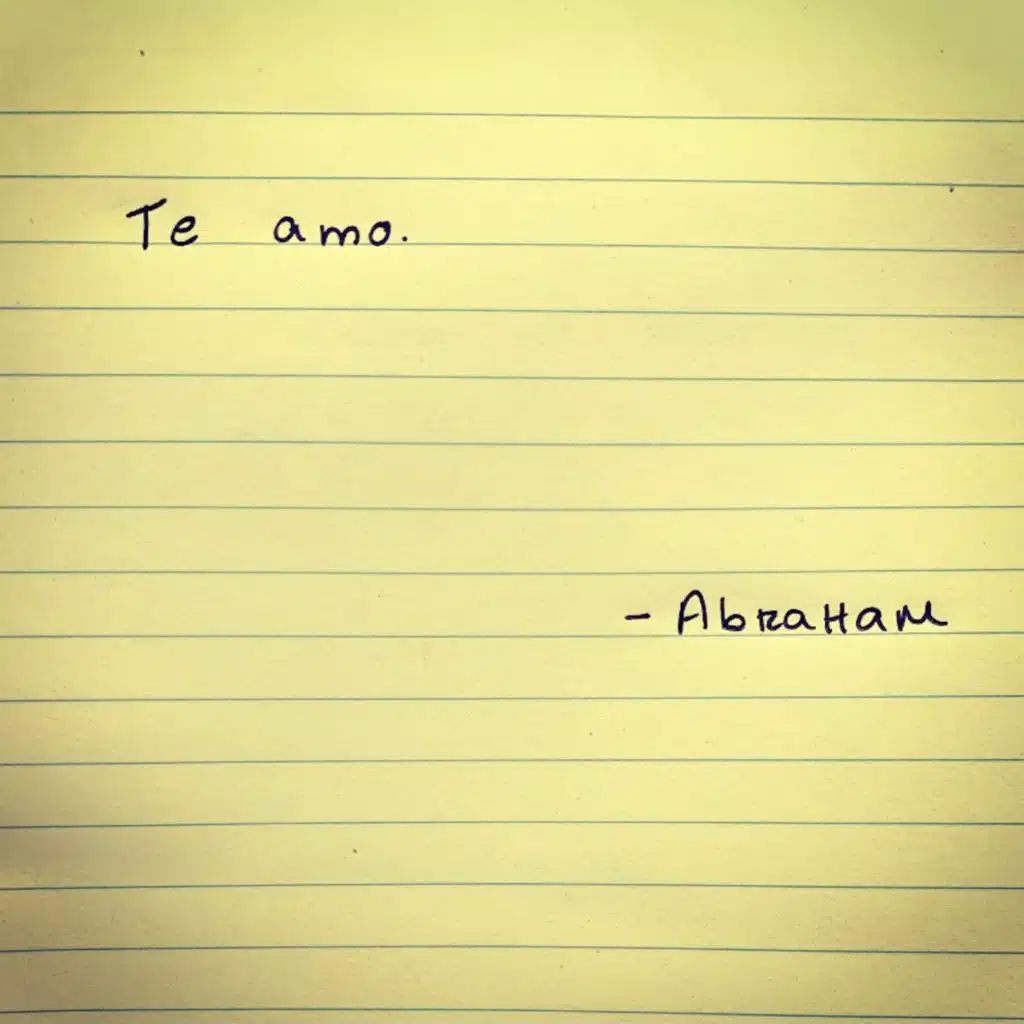 Te amo.
- Abraham